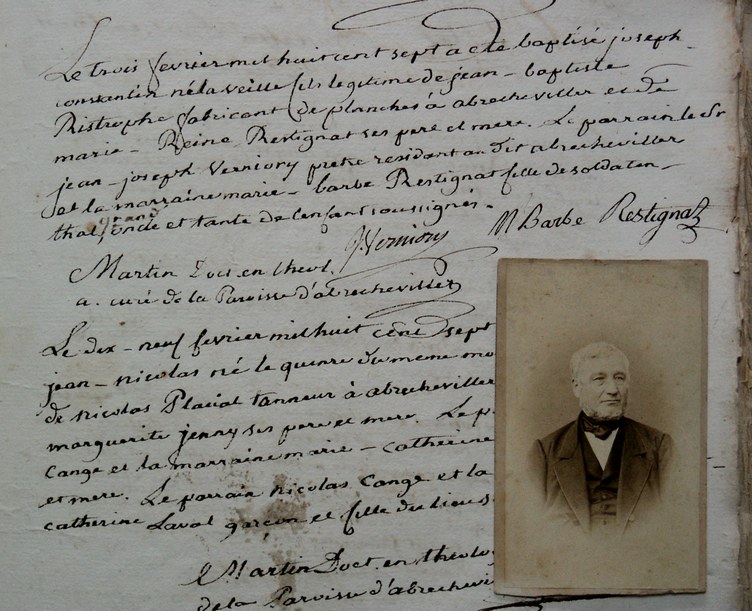 Le trois fevrier mil huit cent sept a eté baptisé joseph-
constantin né la veille fils legitime de jean-baptiste
Ristrophe fabricant de planches à abrecheviller et de
marie-Reine Restignat ses pere et mere. Le parrain le Sr
jean-joseph Verniory pretre residant au dit abrecheviller
et la marraine marie-barbe Restignat fille de soldaten-
grand
thal, oncle et tante de l'enfant soussignés.
J. Verniory M Barbe Restignat
Martin Doct. en theol.
a. curé de la Paroisse d'abrecheviller
Le dix-neuf fevrier mil huit cent sept
jean-nicolas né le quinze du meme mo
de nicolas Placial tanneur à abrecheviller
marguerite jenny ses pere et mere. Le p
Cange et la marraine marie-catherine
et mere. Le parrain nicolas Cange et la
catherine Laval garçon et fille du lieu s
Martin Doct. en theolo
de la Paroisse d'abrechevi